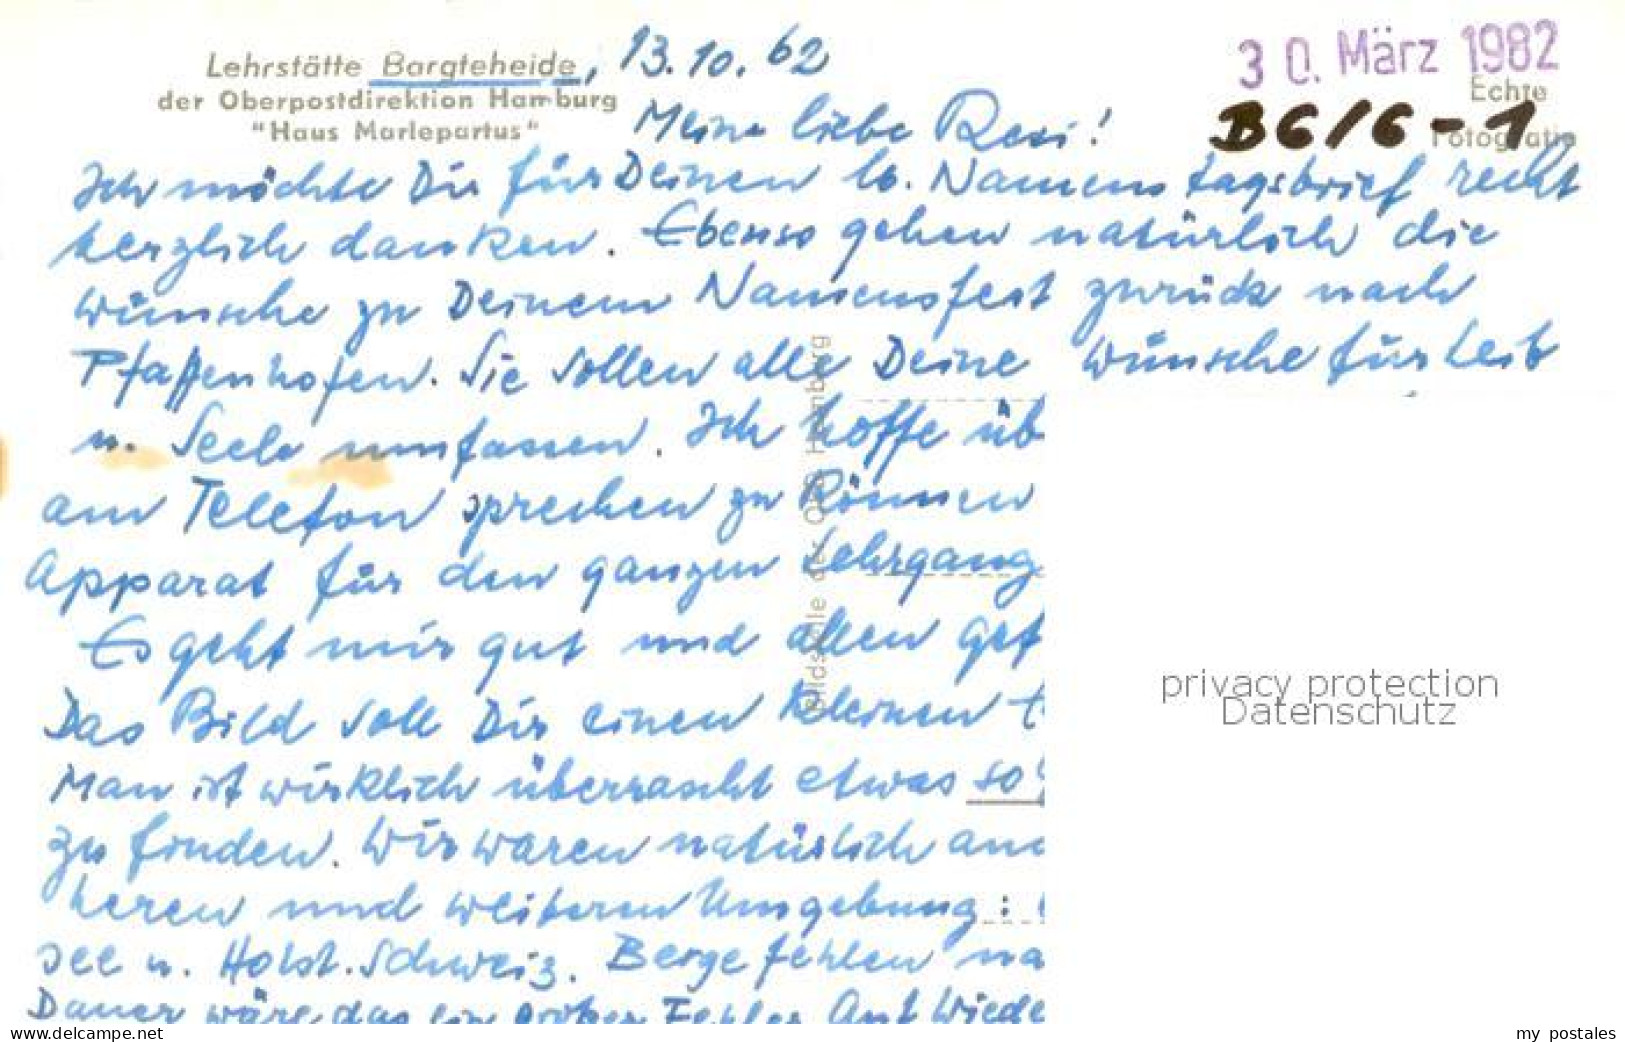 Lehrstätte Bargteheide, 13.10.62
der Oberpostdirektion Hamburg
"Haus Marlepartus"
30. März 1982
Echte
Fotografie
B6/6-1
Meine liebe Resi!
Ich möchte Dir für Deinen lb. Namenstagsbrief recht
herzlich danken. Ebenso gehen natürlich die
Wünsche zu Deinem Namensfest zurück nach
Pfaffenhofen. Sie sollen alle Deine Wünsche für Leib
u. Seele umfassen. Ich hoffe üb
am Telefon sprechen zu können
Apparat für den ganzen Lehrgang
Es geht mir gut und allen gef
Das Bild soll Dir einen kleinen
Man ist wirklich überrascht etwas so
zu finden. Wir waren natürlich auc
heren und weiteren Umgebung:
see u. Holst. Schweiz. Berge fehlen na
Dauer wäre das ein großer Fehler. Auf Wiede
Bildstelle der OPD Hamburg
privacy protection
Datenschutz
www.delcampe.net
my_postales